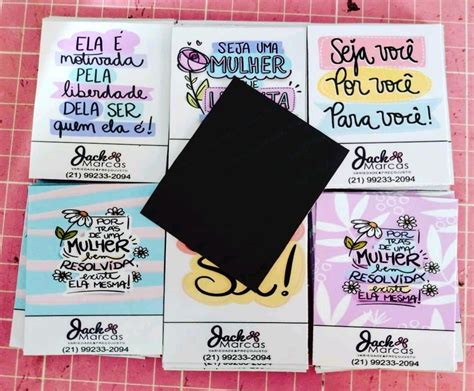 ELA É
motivada
PELA
liberdade
DELA SER
quem ela é!
Jack
Marcas
(21) 99233-2094
SEJA UMA
MULHER
Seja você
Por você
Para você!
Jack
Marcas
VARIEDADE&PREÇOJUSTO
(21) 99233-2094
POR
TRÁS
DE UMA
MULHER
bem
RESOLVIDA
existe
ELA MESMA!
Jack
Marcas
VARIEDADE&PREÇOJUSTO
(21) 99233-2094
Jack
Marcas
VARIEDADE&PREÇOJUSTO
(21) 99233-2094
POR
TRÁS
DE UMA
MULHER
bem
RESOLVIDA
existe
ELA MESMA!
Jack
Marcas
VARIEDADE&PREÇOJUSTO
(21) 99233-2094